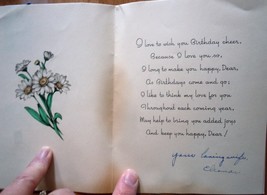 I love to wish you Birthday cheer,
Because I love you so,
I long to make you happy, Dear,
As Birthdays come and go;
I like to think my love for you
Throughout each coming year,
May help to bring you added joys
And keep you happy, Dear!
your loving wife